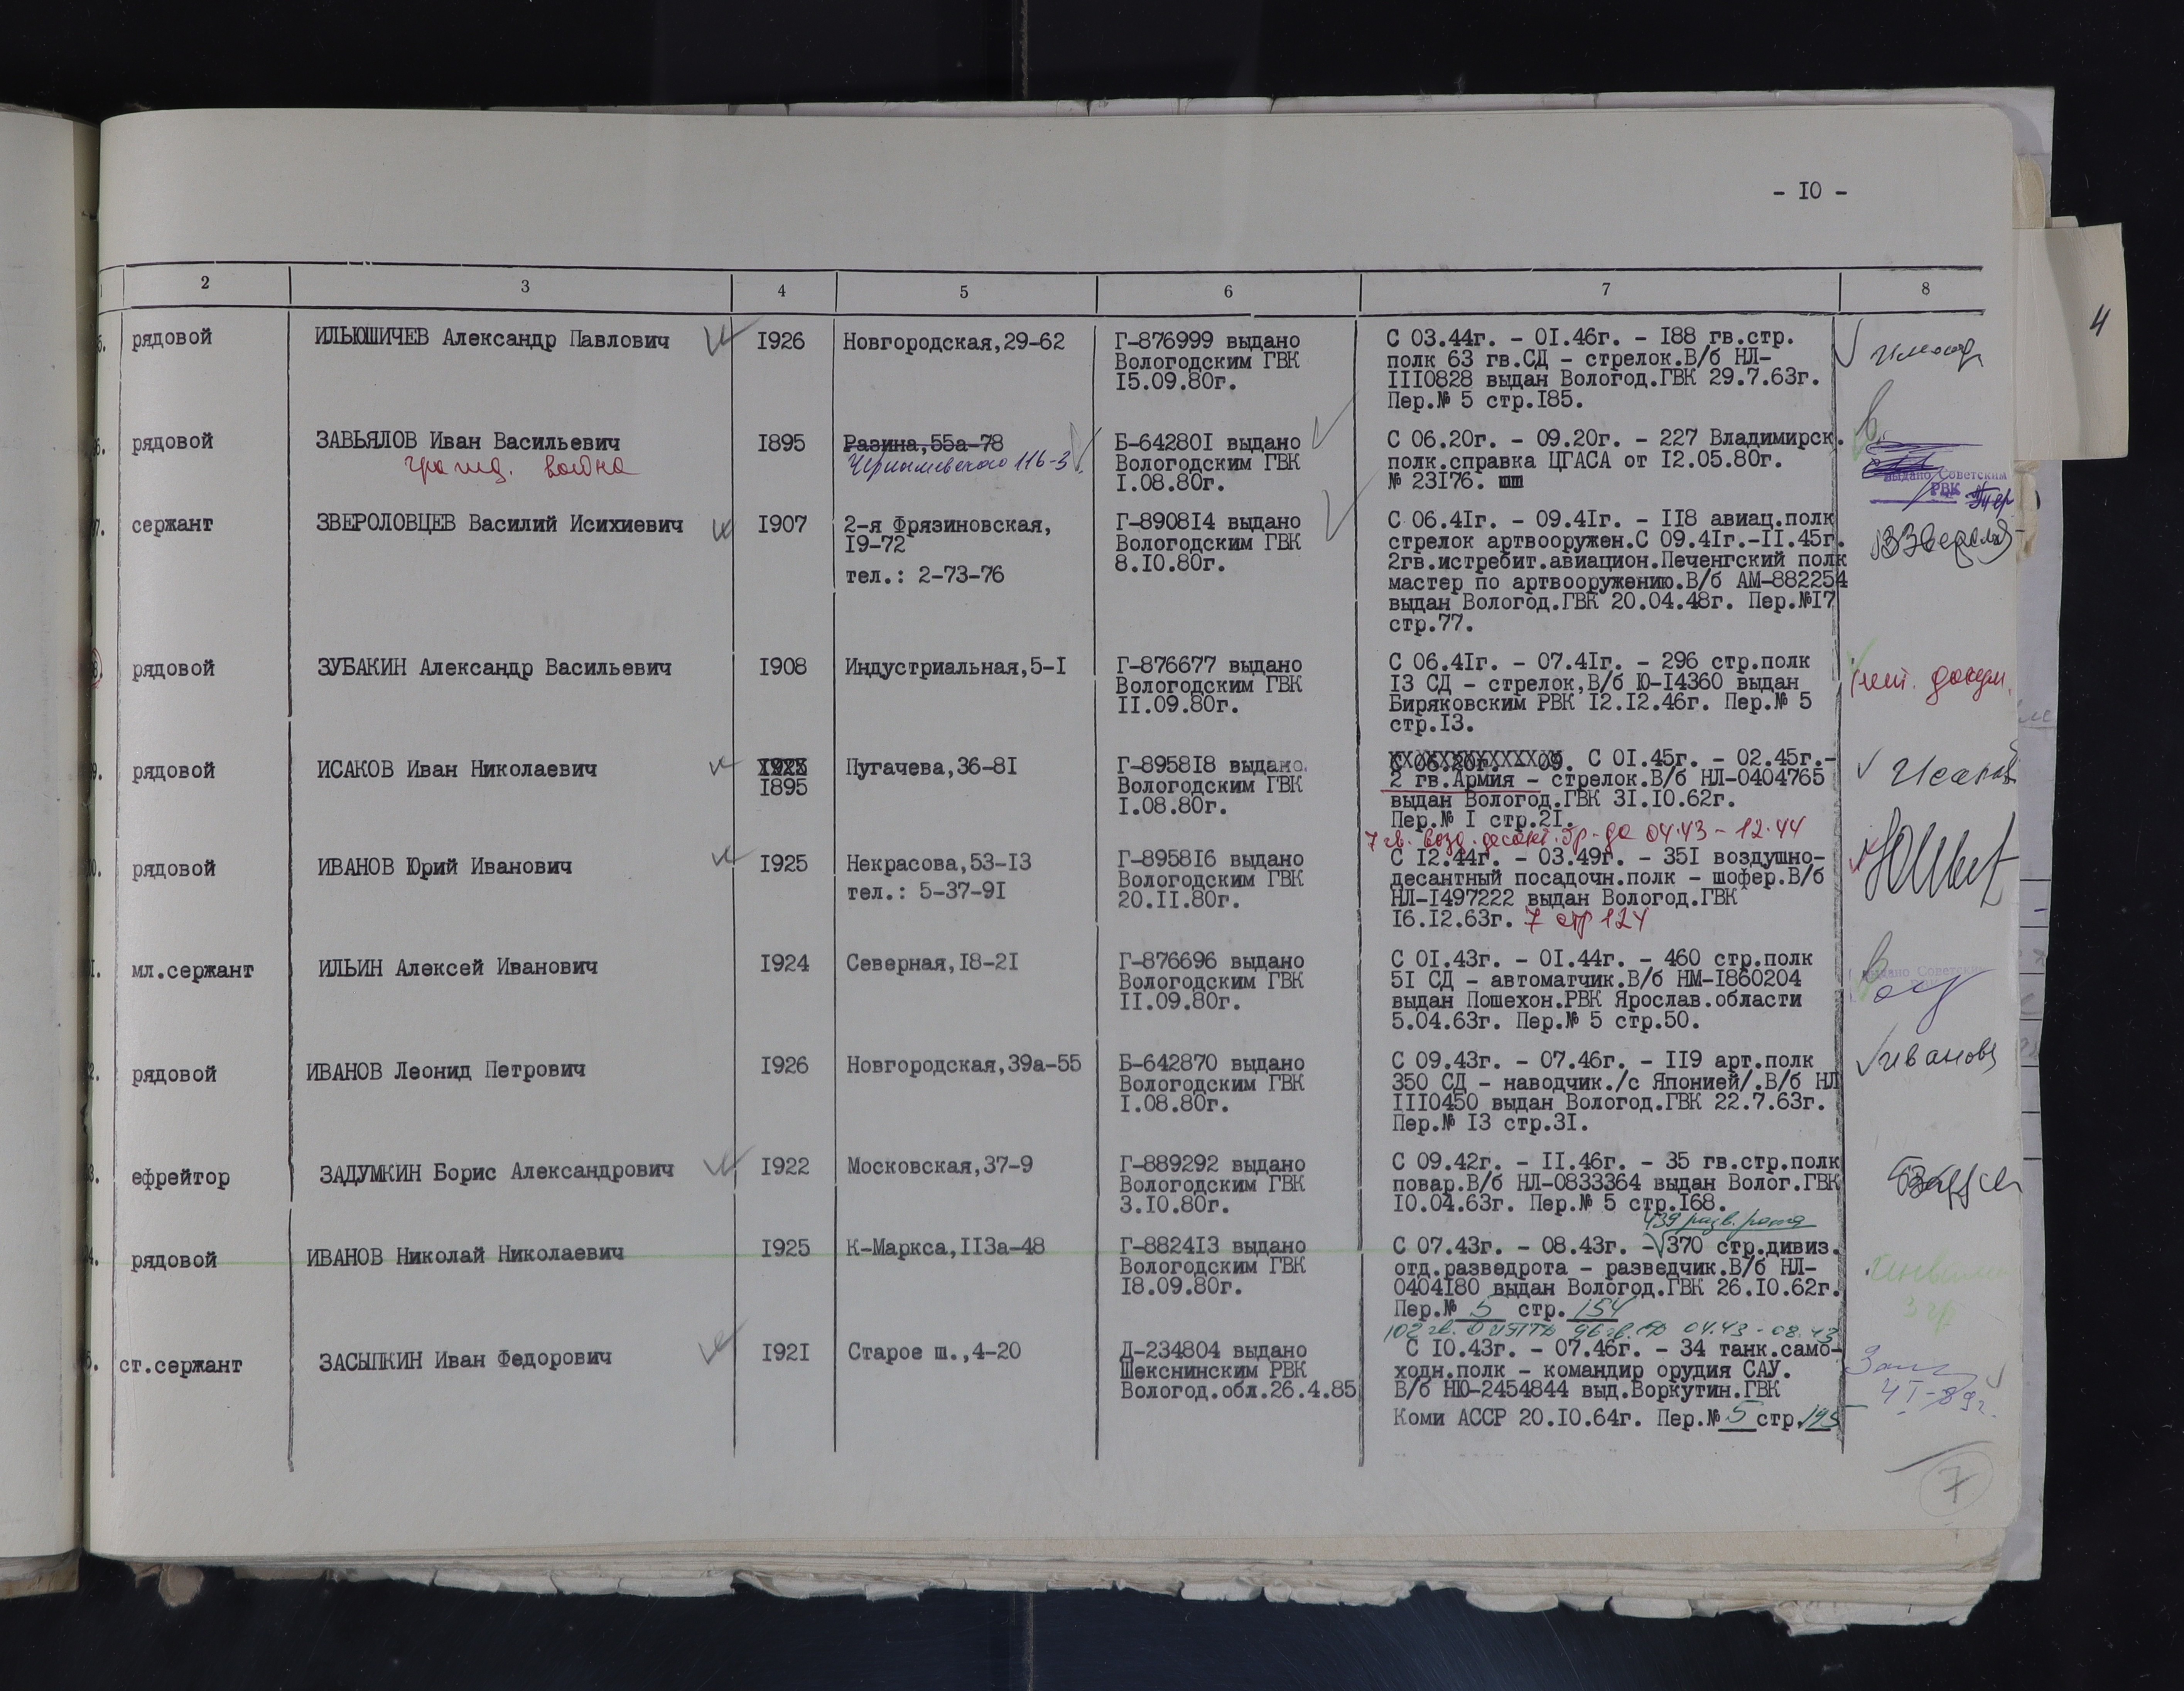 - I0 -
2 3 4 5 6 7 8
5. рядовой ИЛЬЮШИЧЕВ Александр Павлович I926 Новгородская,29-62
Г-876999 выдано
Вологодским ГВК
I5.09.80г.
С 03.44г. - 0I.46г. - I88 гв.стр.
полк 63 гв.СД - стрелок.В/б НЛ-
III0828 выдан Вологод.ГВК 29.7.63г.
Пер.№ 5 стр.I85.
6. рядовой ЗАВЬЯЛОВ Иван Васильевич I895 Разина,55а-78
гражд. война
Чернышевского 116-3
Б-64280I выдано
Вологодским ГВК
I.08.80г.
С 06.20г. - 09.20г. - 227 Владимирск.
полк.справка ЦГАСА от I2.05.80г.
№ 23I76.
выдано Советским
РВК
7. сержант ЗВЕРОЛОВЦЕВ Василий Исихиевич I907
2-я Фрязиновская,
I9-72
тел.: 2-73-76
Г-8908I4 выдано
Вологодским ГВК
8.I0.80г.
С 06.4Iг. - 09.4Iг. - II8 авиац.полк
стрелок артвооружен.С 09.4Iг.-II.45г.
2гв.истребит.авиацион.Печенгский полк
мастер по артвооружению.В/б АМ-882254
выдан Вологод.ГВК 20.04.48г. Пер.№I7
стр.77.
рядовой ЗУБАКИН Александр Васильевич I908 Индустриальная,5-I
Г-876677 выдано
Вологодским ГВК
II.09.80г.
С 06.4Iг. - 07.4Iг. - 296 стр.полк
I3 СД - стрелок,В/б Ю-I4360 выдан
Биряковским РВК I2.I2.46г. Пер.№ 5
стр.I3.
9. рядовой ИСАКОВ Иван Николаевич
I895
Пугачева,36-8I
Г-8958I8 выдано
Вологодским ГВК
I.08.80г.
С 0I.45г. - 02.45г.-
2 гв.Армия - стрелок.В/б НЛ-0404765
выдан Вологод.ГВК 3I.I0.62г.
Пер.№ I стр.2I.
Исаков
0. рядовой ИВАНОВ Юрий Иванович I925
Некрасова,53-I3
тел.: 5-37-9I
Г-8958I6 выдано
Вологодским ГВК
20.II.80г.
7 гв. возд. десант. бр-да 04.43 - 12.44
С I2.44г. - 03.49г. - 35I воздушно-
десантный посадочн.полк - шофер.В/б
НЛ-I497222 выдан Вологод.ГВК
I6.I2.63г. 7 стр 124
I. мл.сержант ИЛЬИН Алексей Иванович I924 Северная,I8-2I
Г-876696 выдано
Вологодским ГВК
II.09.80г.
С 0I.43г. - 0I.44г. - 460 стр.полк
5I СД - автоматчик.В/б НМ-I860204
выдан Пошехон.РВК Ярослав.области
5.04.63г. Пер.№ 5 стр.50.
выдано Советским
2. рядовой ИВАНОВ Леонид Петрович I926 Новгородская,39а-55
Б-642870 выдано
Вологодским ГВК
I.08.80г.
С 09.43г. - 07.46г. - II9 арт.полк
350 СД - наводчик./с Японией/.В/б НЛ
III0450 выдан Вологод.ГВК 22.7.63г.
Пер.№ I3 стр.3I.
3. ефрейтор ЗАДУМКИН Борис Александрович I922 Московская,37-9
Г-889292 выдано
Вологодским ГВК
3.I0.80г.
С 09.42г. - II.46г. - 35 гв.стр.полк
повар.В/б НЛ-0833364 выдан Волог.ГВК
I0.04.63г. Пер.№ 5 стр.I68.
4. рядовой ИВАНОВ Николай Николаевич I925 К-Маркса,II3а-48
Г-8824I3 выдано
Вологодским ГВК
I8.09.80г.
439 разв. рота
С 07.43г. - 08.43г. - 370 стр.дивиз.
отд.разведрота - разведчик.В/б НЛ-
0404I80 выдан Вологод.ГВК 26.I0.62г.
Пер.№ 5 стр. 154
04.43 - 08.43
5. ст.сержант ЗАСЫПКИН Иван Федорович I92I Старое ш.,4-20
Д-234804 выдано
Шекснинским РВК
Вологод.обл.26.4.85
С I0.43г. - 07.46г. - 34 танк.само-
ходн.полк - командир орудия САУ.
В/б НЮ-2454844 выд.Воркутин.ГВК
Коми АССР 20.I0.64г. Пер.№ 5 стр. 195
7
4